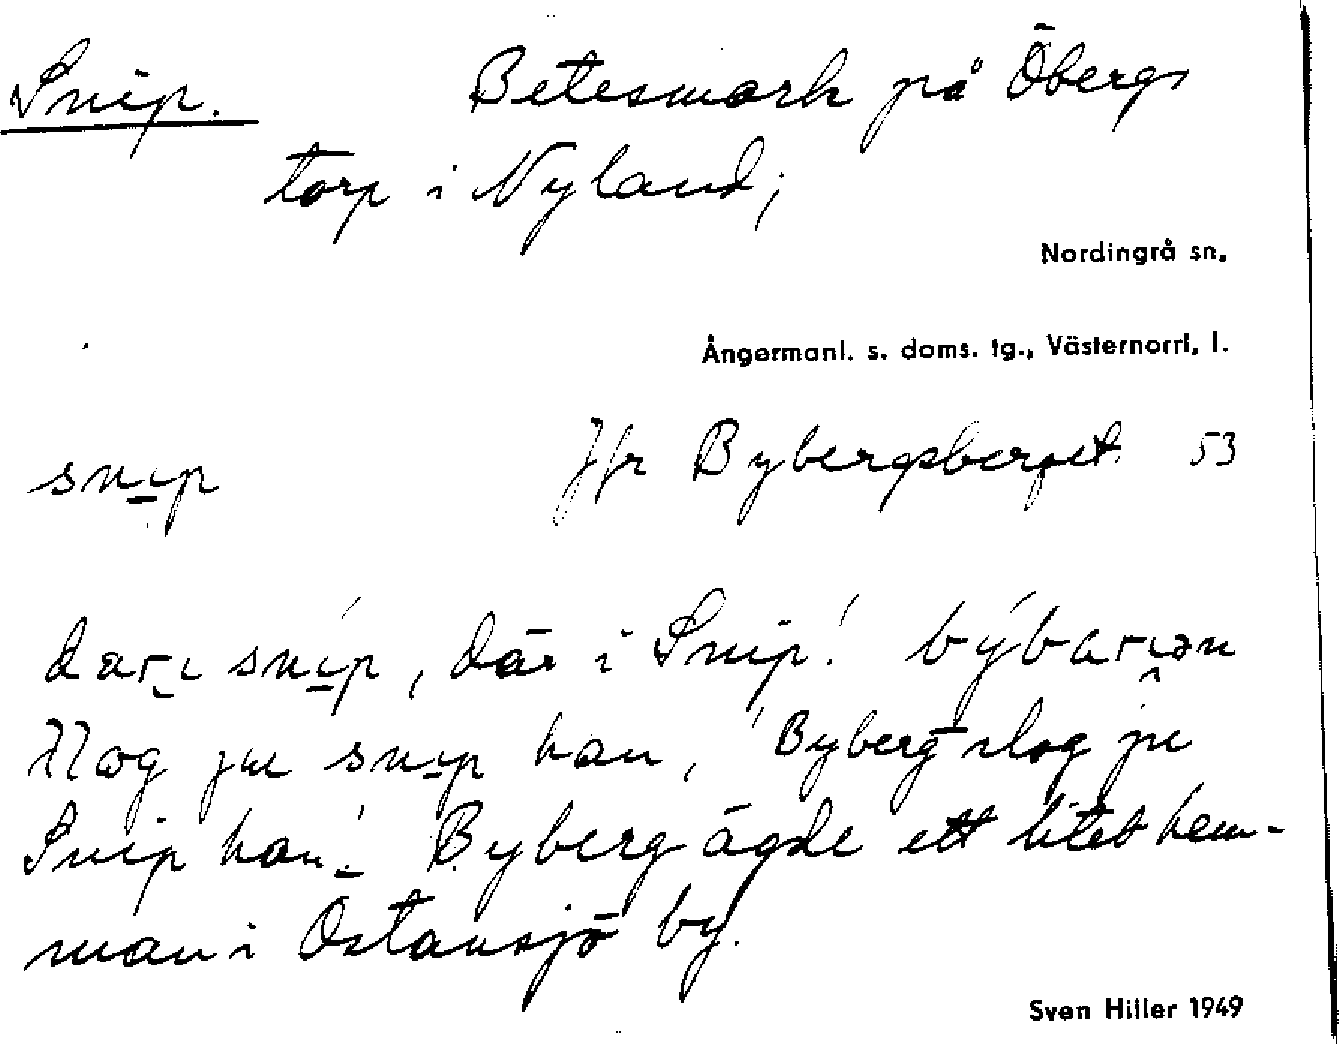 Snip. Betesmark på Öbergs
torp i Nyland;
Nordingrå sn.
Ångermanl. s. doms. tg., Västernorrl. l.
snip Jfr Bybergsberget 53
snip, 'där i Snip'.
snip han, 'Byberg slog ju
Snip han'. Byberg ägde ett litet hem-
man i Östansjö by.
Sven Hiller 1949